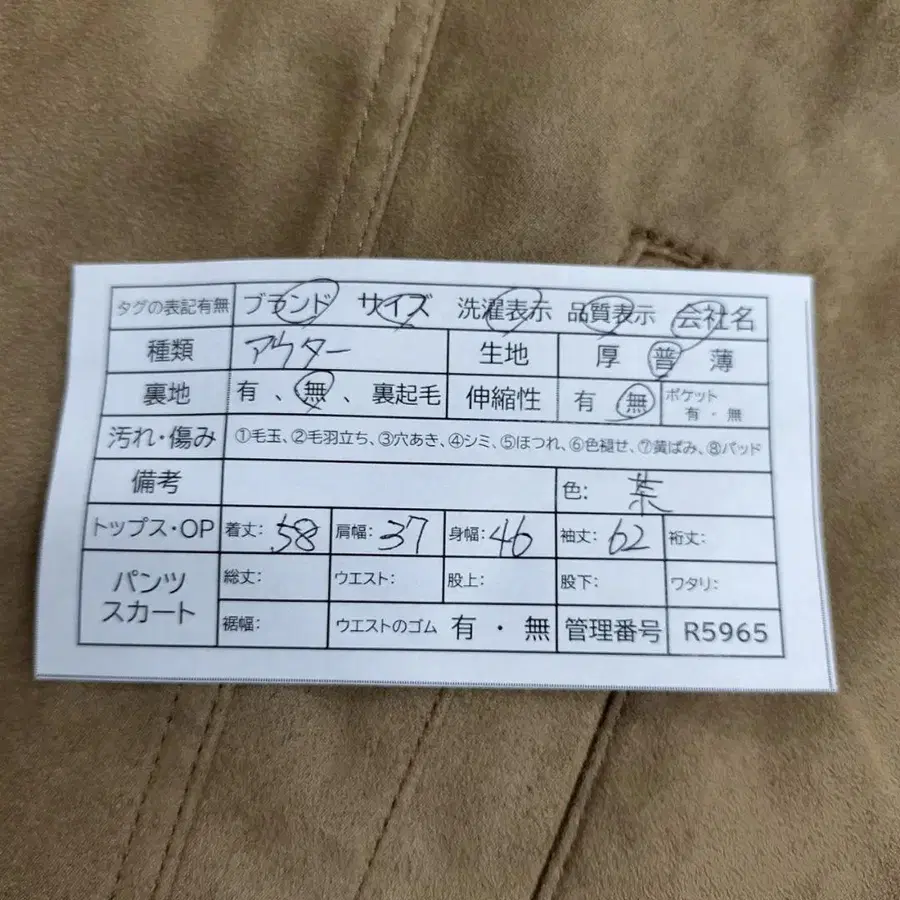 タグの表記有無 ブランド サイズ 洗濯表示 品質表示 会社名
種類 アウター 生地 厚 普 薄
裏地 有、無、裏起毛 伸縮性 有 無 ポケット 有・無
汚れ・傷み ①毛玉、②毛羽立ち、③穴あき、④シミ、⑤ほつれ、⑥色褪せ、⑦黄ばみ、⑧パッド
備考 色: 茶
トップス・OP 着丈: 58 肩幅: 37 身幅: 46 袖丈: 62 裄丈:
パンツ スカート 総丈: ウエスト: 股上: 股下: ワタリ:
裾幅: ウエストのゴム 有・無 管理番号 R5965